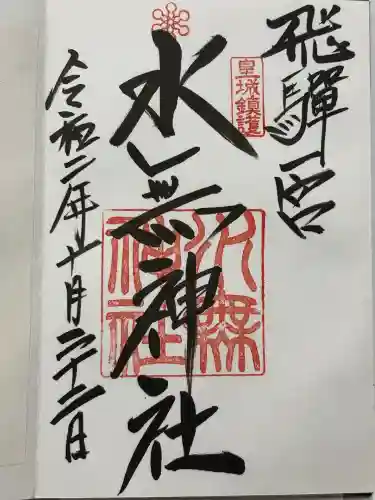 飛騨一宮
皇城鎮護
水無神社
水無神社
令和二年十月二十二日